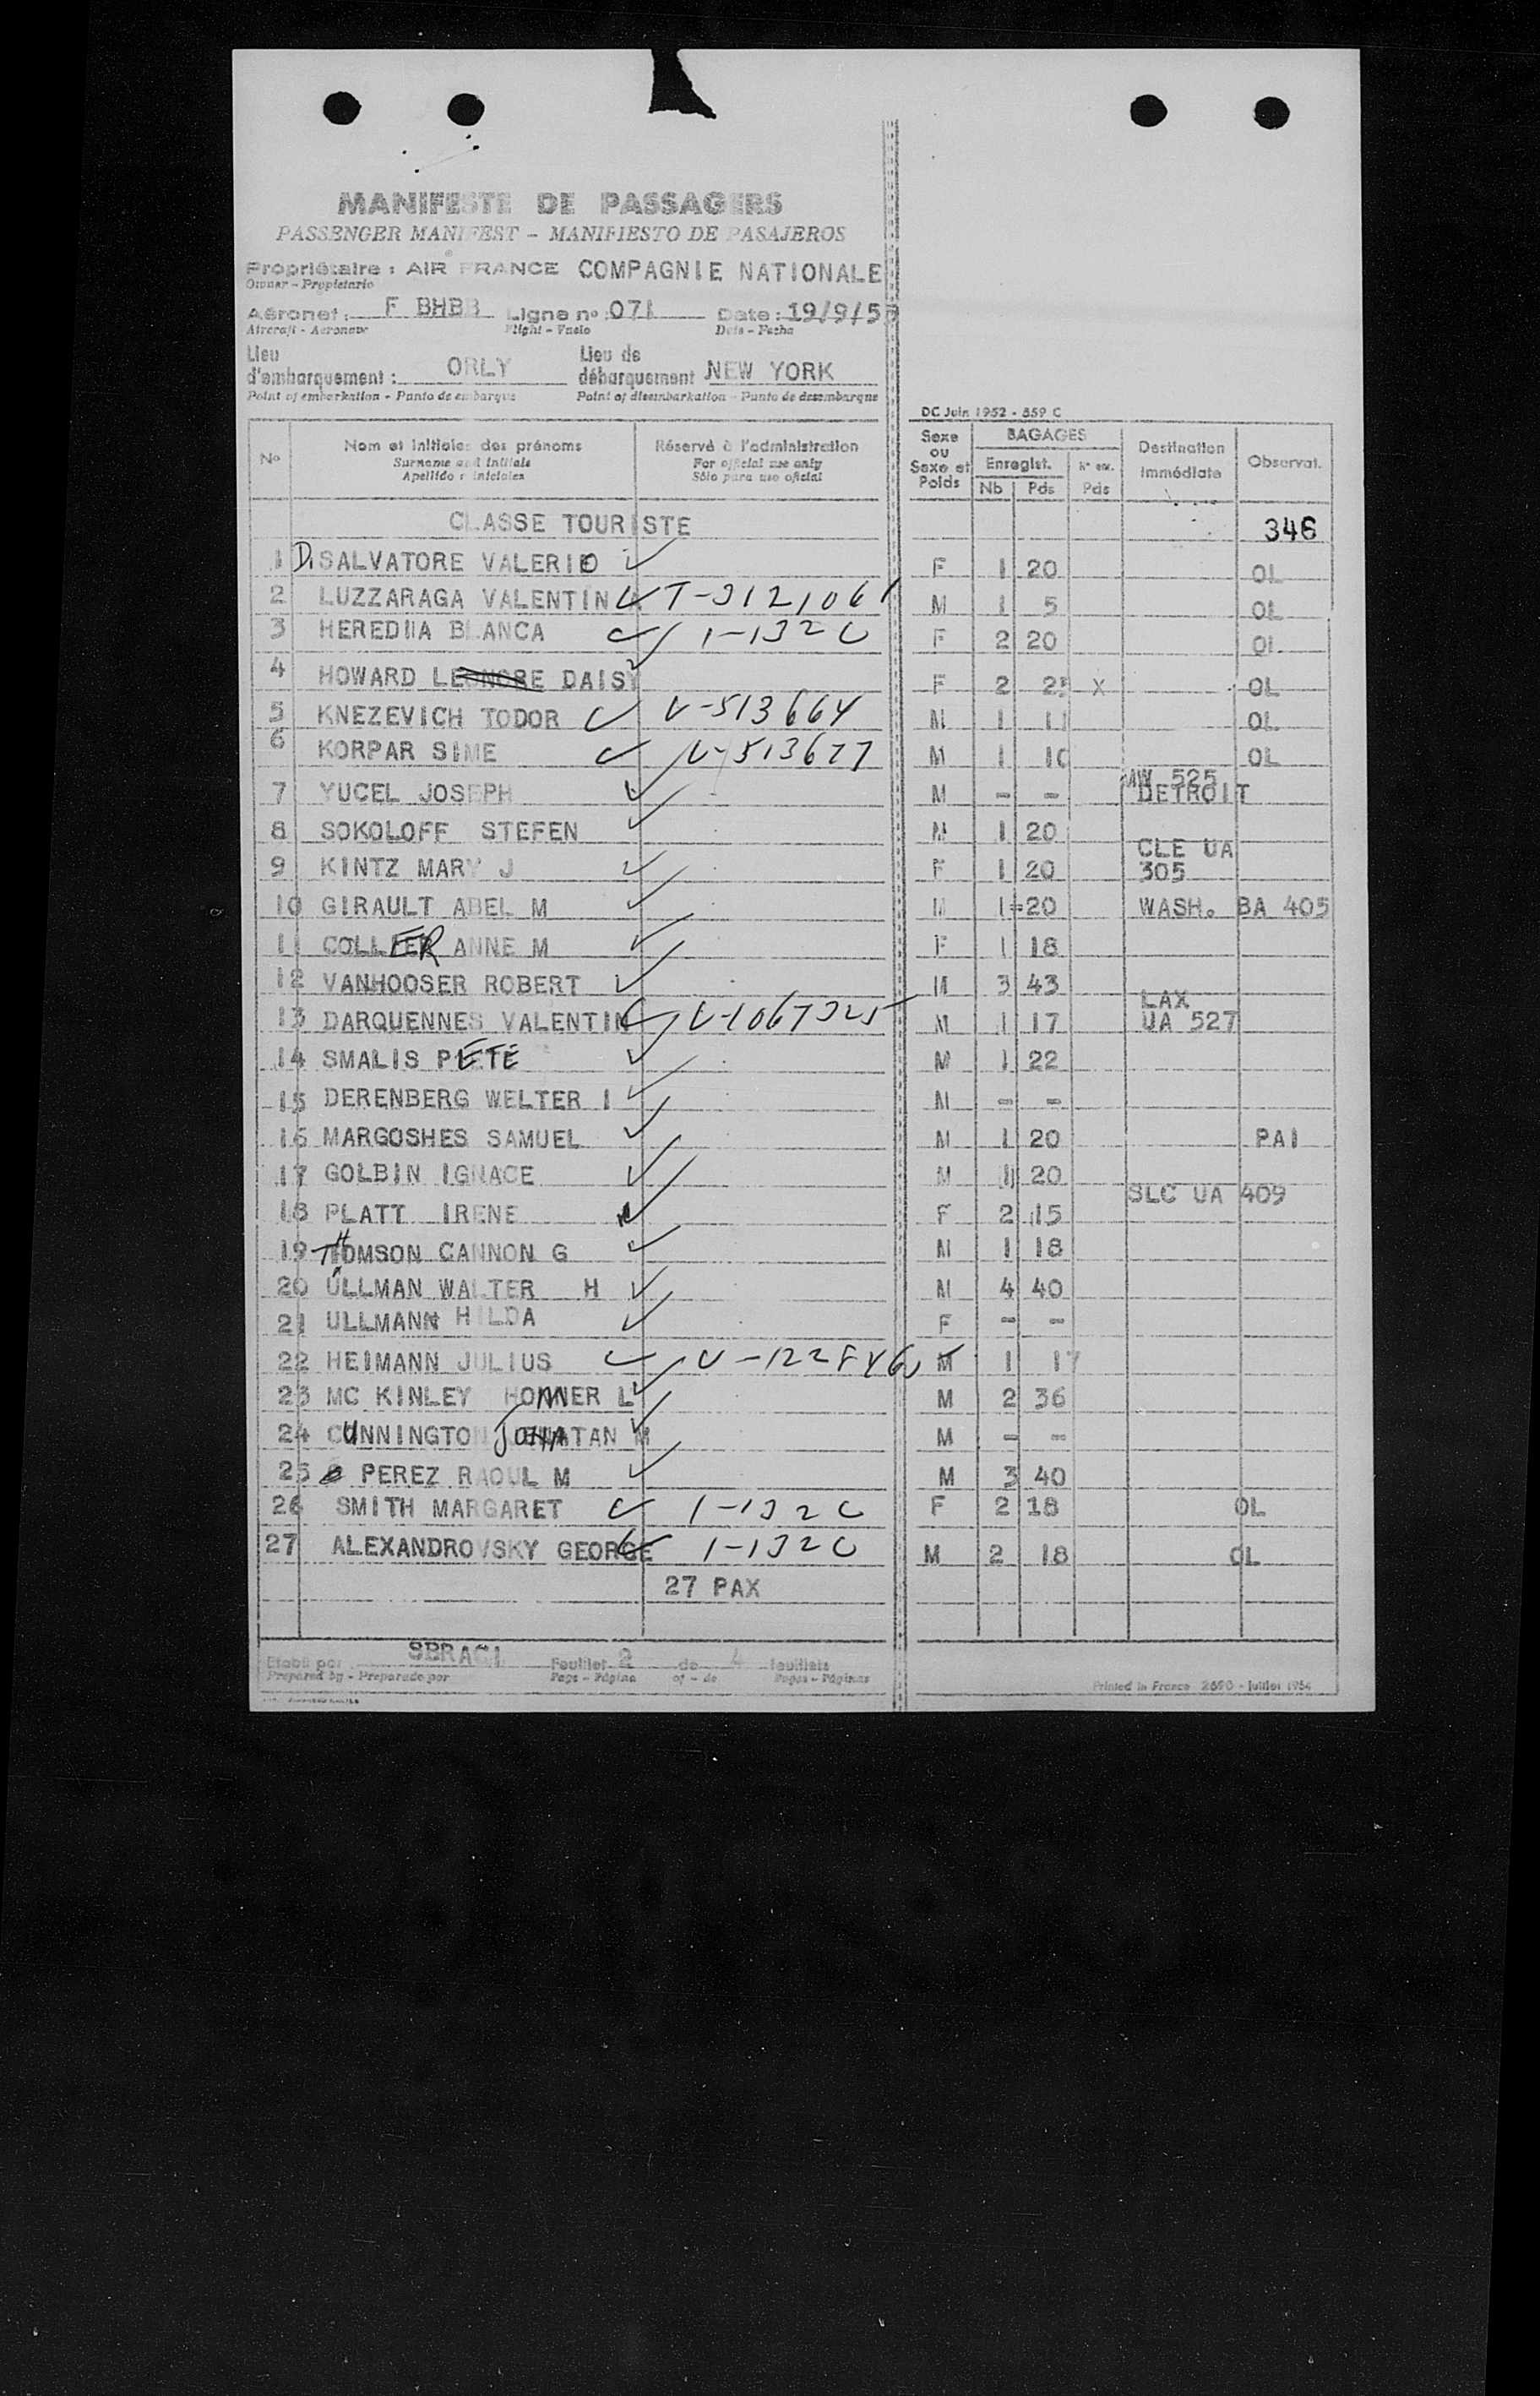 MANIFESTE DE PASSAGERS
PASSENGER MANIFEST - MANIFIESTO DE PASAJEROS
Propriétaire : AIR FRANCE COMPAGNIE NATIONALE
Owner - Propietario
Aéronef : F BHBB Ligne nº : 071 Date : 19/9/5
Aircraft - Aeronave Flight - Vuelo Date - Fecha
Lieu d'embarquement : ORLY Lieu de débarquement NEW YORK
Point of embarkation - Punto de embarque Point of disembarkation - Punto de desembarque
DC Juin 1952 - 859 C
Nº Nom et initiales des prénoms Réservé à l'administration Sexe ou Sexe et Poids BAGAGES Destination immédiate Observat.
Surname and initials For official use only Enregist.
Apellido e iniciales Sólo para uso oficial Nb Pds Pds
CLASSE TOURISTE 346
1 Di SALVATORE VALERIO F 1 20 OL
2 LUZZARAGA VALENTIN T-3121061 M 1 5 OL
3 HEREDIIA BLANCA 1-132C F 2 20 OL
4 HOWARD LEONORE DAISY F 2 25 X OL
5 KNEZEVICH TODOR V-513664 M 1 11 OL
6 KORPAR SIME V-513677 M 1 10 OL
7 YUCEL JOSEPH M - - NW 525 DETROIT
8 SOKOLOFF STEFEN M 1 20
9 KINTZ MARY J F 1 20 CLE UA 305
10 GIRAULT ABEL M M 1 20 WASH. BA 405
11 COLLIER ANNE M F 1 18
12 VANHOOSER ROBERT M 3 43
13 DARQUENNES VALENTIN V-1067325 M 1 17 LAX UA 527
14 SMALIS PETE M 1 22
15 DERENBERG WELTER I M - -
16 MARGOSHES SAMUEL M 1 20 PAI
17 GOLBIN IGNACE M 1 20
18 PLATT IRENE F 2 15 SLC UA 409
19 THOMSON CANNON G M 1 18
20 ULLMAN WALTER H M 4 40
21 ULLMANN HILDA F - -
22 HEIMANN JULIUS M 1 17
23 MC KINLEY HOMER L M 2 36
24 CUNNINGTON JONATAN M M - -
25 PEREZ RAOUL M M 3 40
26 SMITH MARGARET 1-132C F 2 18 OL
27 ALEXANDROVSKY GEORGE 1-132C M 2 18 OL
27 PAX
Etabli par SBRAGI Feuillet 2 de 4 feuillets
Prepared by - Preparado por Page - Página of - de Pages - Páginas
Printed in France 2690 - Juillet 1954